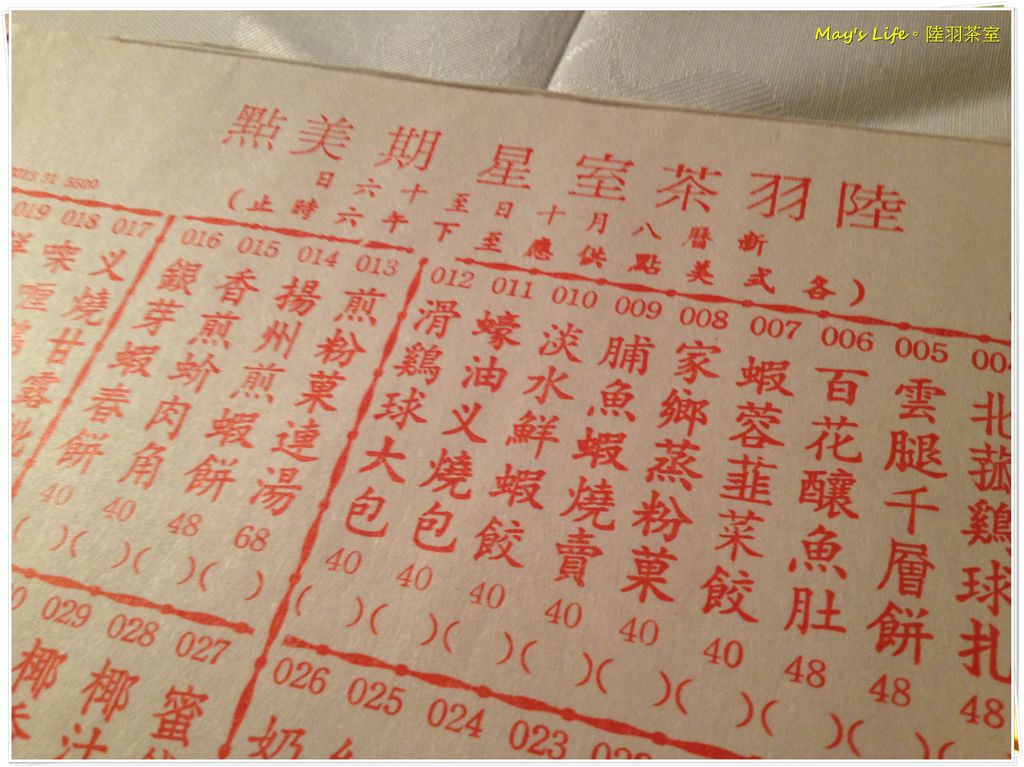 May's Life。陸羽茶室
陸羽茶室星期美點
新曆八月十日至十六日
(各式美點供應至下午六時止)
004 北菰鷄球扎 48
005 雲腿千層餅 48
006 百花釀魚肚 48
007 蝦蓉韮菜餃 40
008 家鄉蒸粉菓 40
009 脯魚蝦燒賣 40
010 淡水鮮蝦餃 40
011 蠔油义燒包 40
012 滑鷄球大包 40
013 煎粉菓連湯 68
014 揚州煎蝦餅 48
015 香煎蚧肉角 40
016 銀芽蝦春餅 40
017 义燒甘露批
018 喫喱鷄
019
023
024
025
026 奶
027 蜜
028 椰汁
029 椰香